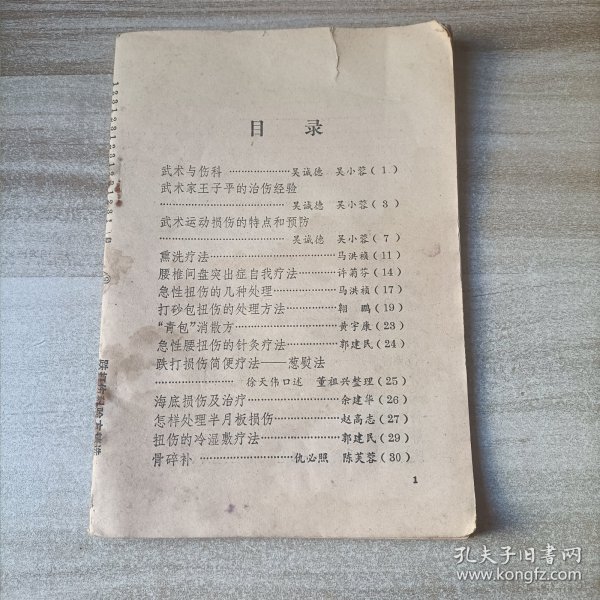 目 录
武术与伤科 ………………吴诚德 吴小蓉(1)
武术家王子平的治伤经验
………………………吴诚德 吴小蓉(3)
武术运动损伤的特点和预防
………………………吴诚德 吴小蓉(7)
熏洗疗法………………………马洪祯(11)
腰椎间盘突出症自我疗法………许菊芬(14)
急性扭伤的几种处理……………马洪祯(17)
打砂包扭伤的处理方法…………翱 鹏(19)
“青包”消散方…………………黄宇康(23)
急性腰扭伤的针灸疗法…………郭建民(24)
跌打损伤简便疗法——葱熨法
……………徐天伟口述 董祖兴整理(25)
海底损伤及治疗…………………余建华(26)
怎样处理半月板损伤……………赵高志(27)
扭伤的冷湿敷疗法………………郭建民(29)
骨碎补 ………………仇必照 陈芙蓉(30)
1
孔夫子旧书网
www.kongfz.com